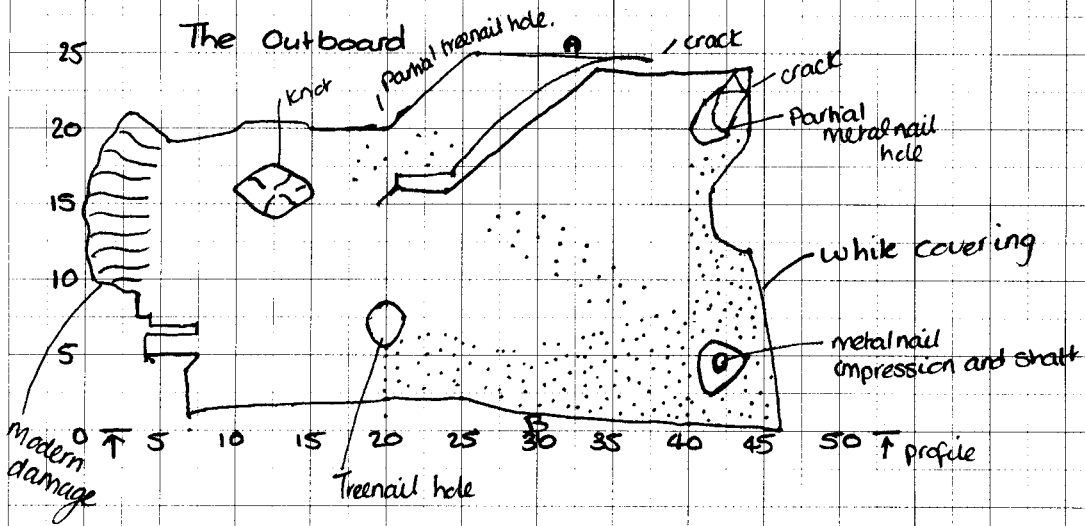 The Outboard
Partial treenail hole.
A
crack
crack
Knot
Partial
metal nail
hole
White covering
metal nail
impression and shaft
25
20
15
10
5
0 5 10 15 20 25 30 35 40 45 50
B
profile
Modern
damage
Treenail hole